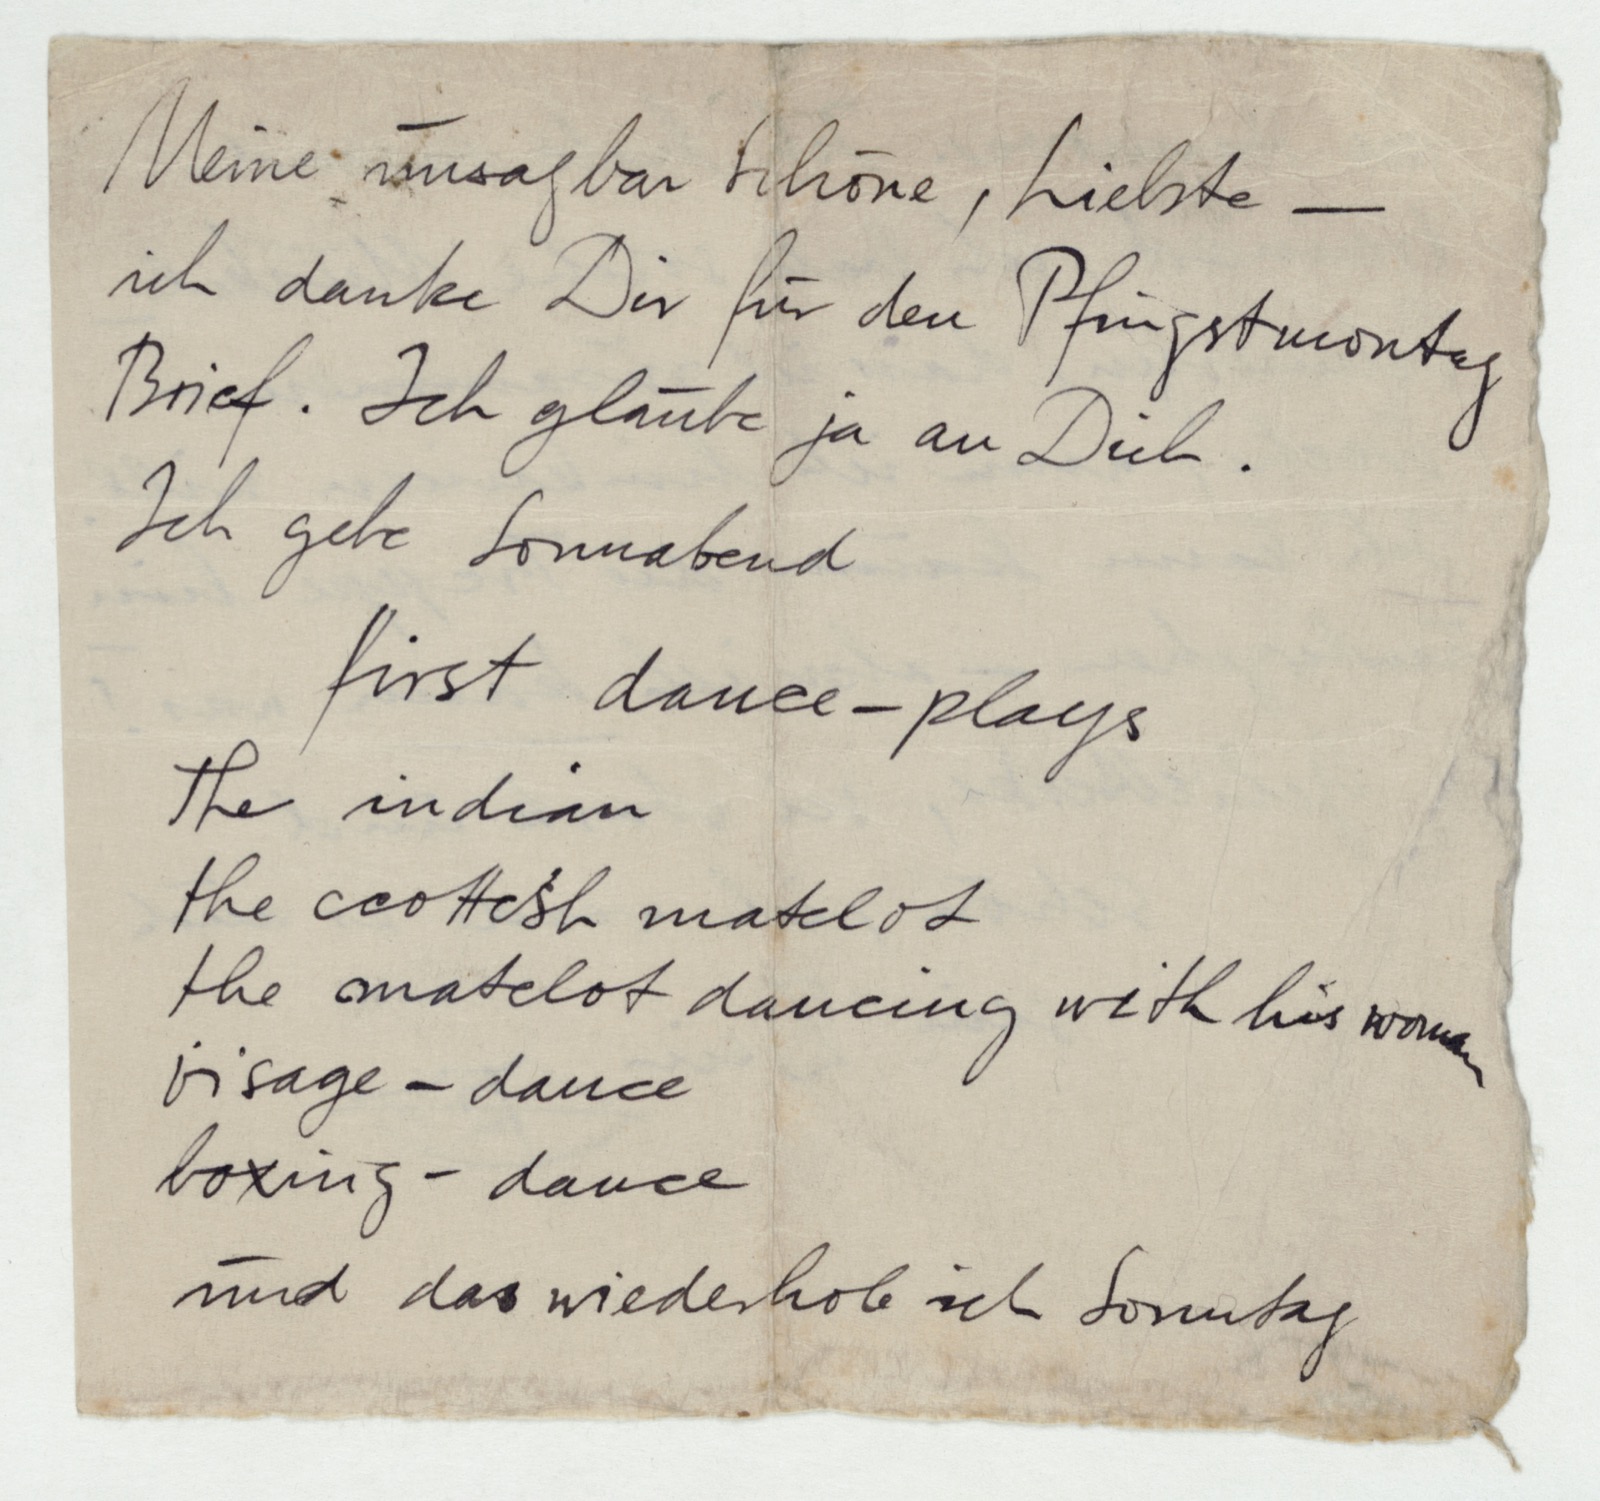 Meine unsagbar schöne, Liebste —
ich danke Dir für den Pfingstmontag
Brief. Ich glaube ja an Dich.
Ich gebe Sonnabend
first dance-plays
The indian
the ccottcish matelot
the matelot dancing with his woman
visage - dance
boxing - dance
und das wiederhole ich Sonntag